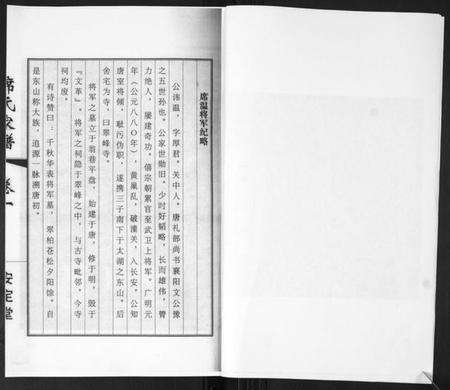 席温将军纪略
公讳温，字厚君，关中人。唐礼部尚书襄阳文公豫
之五世孙也。公家世勋旧，少时好韬略，长而雄伟，膂
力绝人，屡建奇功。僖宗朝累官至武卫上将军。广明元
年（公元八八〇年），黄巢乱，破潼关，入长安。公知
唐室将倾，耻污伪职，遂携三子南下于太湖之东山。后
舍宅为寺，曰翠峰寺。
将军之墓立于翁巷年盘，始建于唐，修于明，毁于
『文革』。将军之祠隐于翠峰之中，与古寺毗邻，今寺
祠均废。
有诗赞曰：千秋华表将军墓，翠柏苍松夕阳馀。自
是东山称大族，追源一脉溯唐初。
席氏家谱
卷一
安定堂